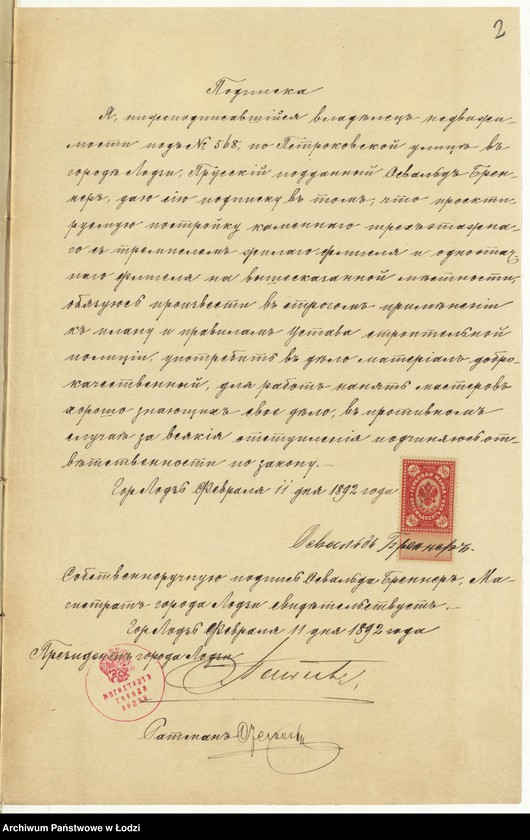 2
Подписка
Я, нижеподписавшійся владѣлецъ недвижи-
мости подъ № 568, по Петроковской улицѣ въ
городѣ Лодзи, Прусскій подданный Освальдъ Брен-
неръ, даю сію подписку въ томъ, что проэкти-
руемую постройку каменнаго трехъэтажна-
го съ тремпелемъ жилаго флигеля и одноэтаж-
наго флигеля на вышесказанной мѣстности,
обязуюсь произвести въ строгомъ примѣненіи
къ плану и правиламъ Устава строительной
полиціи, употребить въ дѣло матеріалъ добро-
качественный, для работъ нанять мастеровъ
хорошо знающихъ свое дѣло, въ противномъ
случаѣ за всякія отступленія подчиняюсь от-
вѣтственности по закону. —
Гор. Лодзь Февраля 11 дня 1892 года
Освальдъ Бреннеръ.
Собственноручную подпись Освальда Бреннеръ, Ма-
гистратъ города Лодзи свидѣтельствуетъ. —
Гор. Лодзь Февраля 11 дня 1892 года
Президентъ города Лодзи
МАГИСТРАТЪ
ГОРОДА
ЛОДЗИ
Ратманъ
Archiwum Państwowe w Łodzi